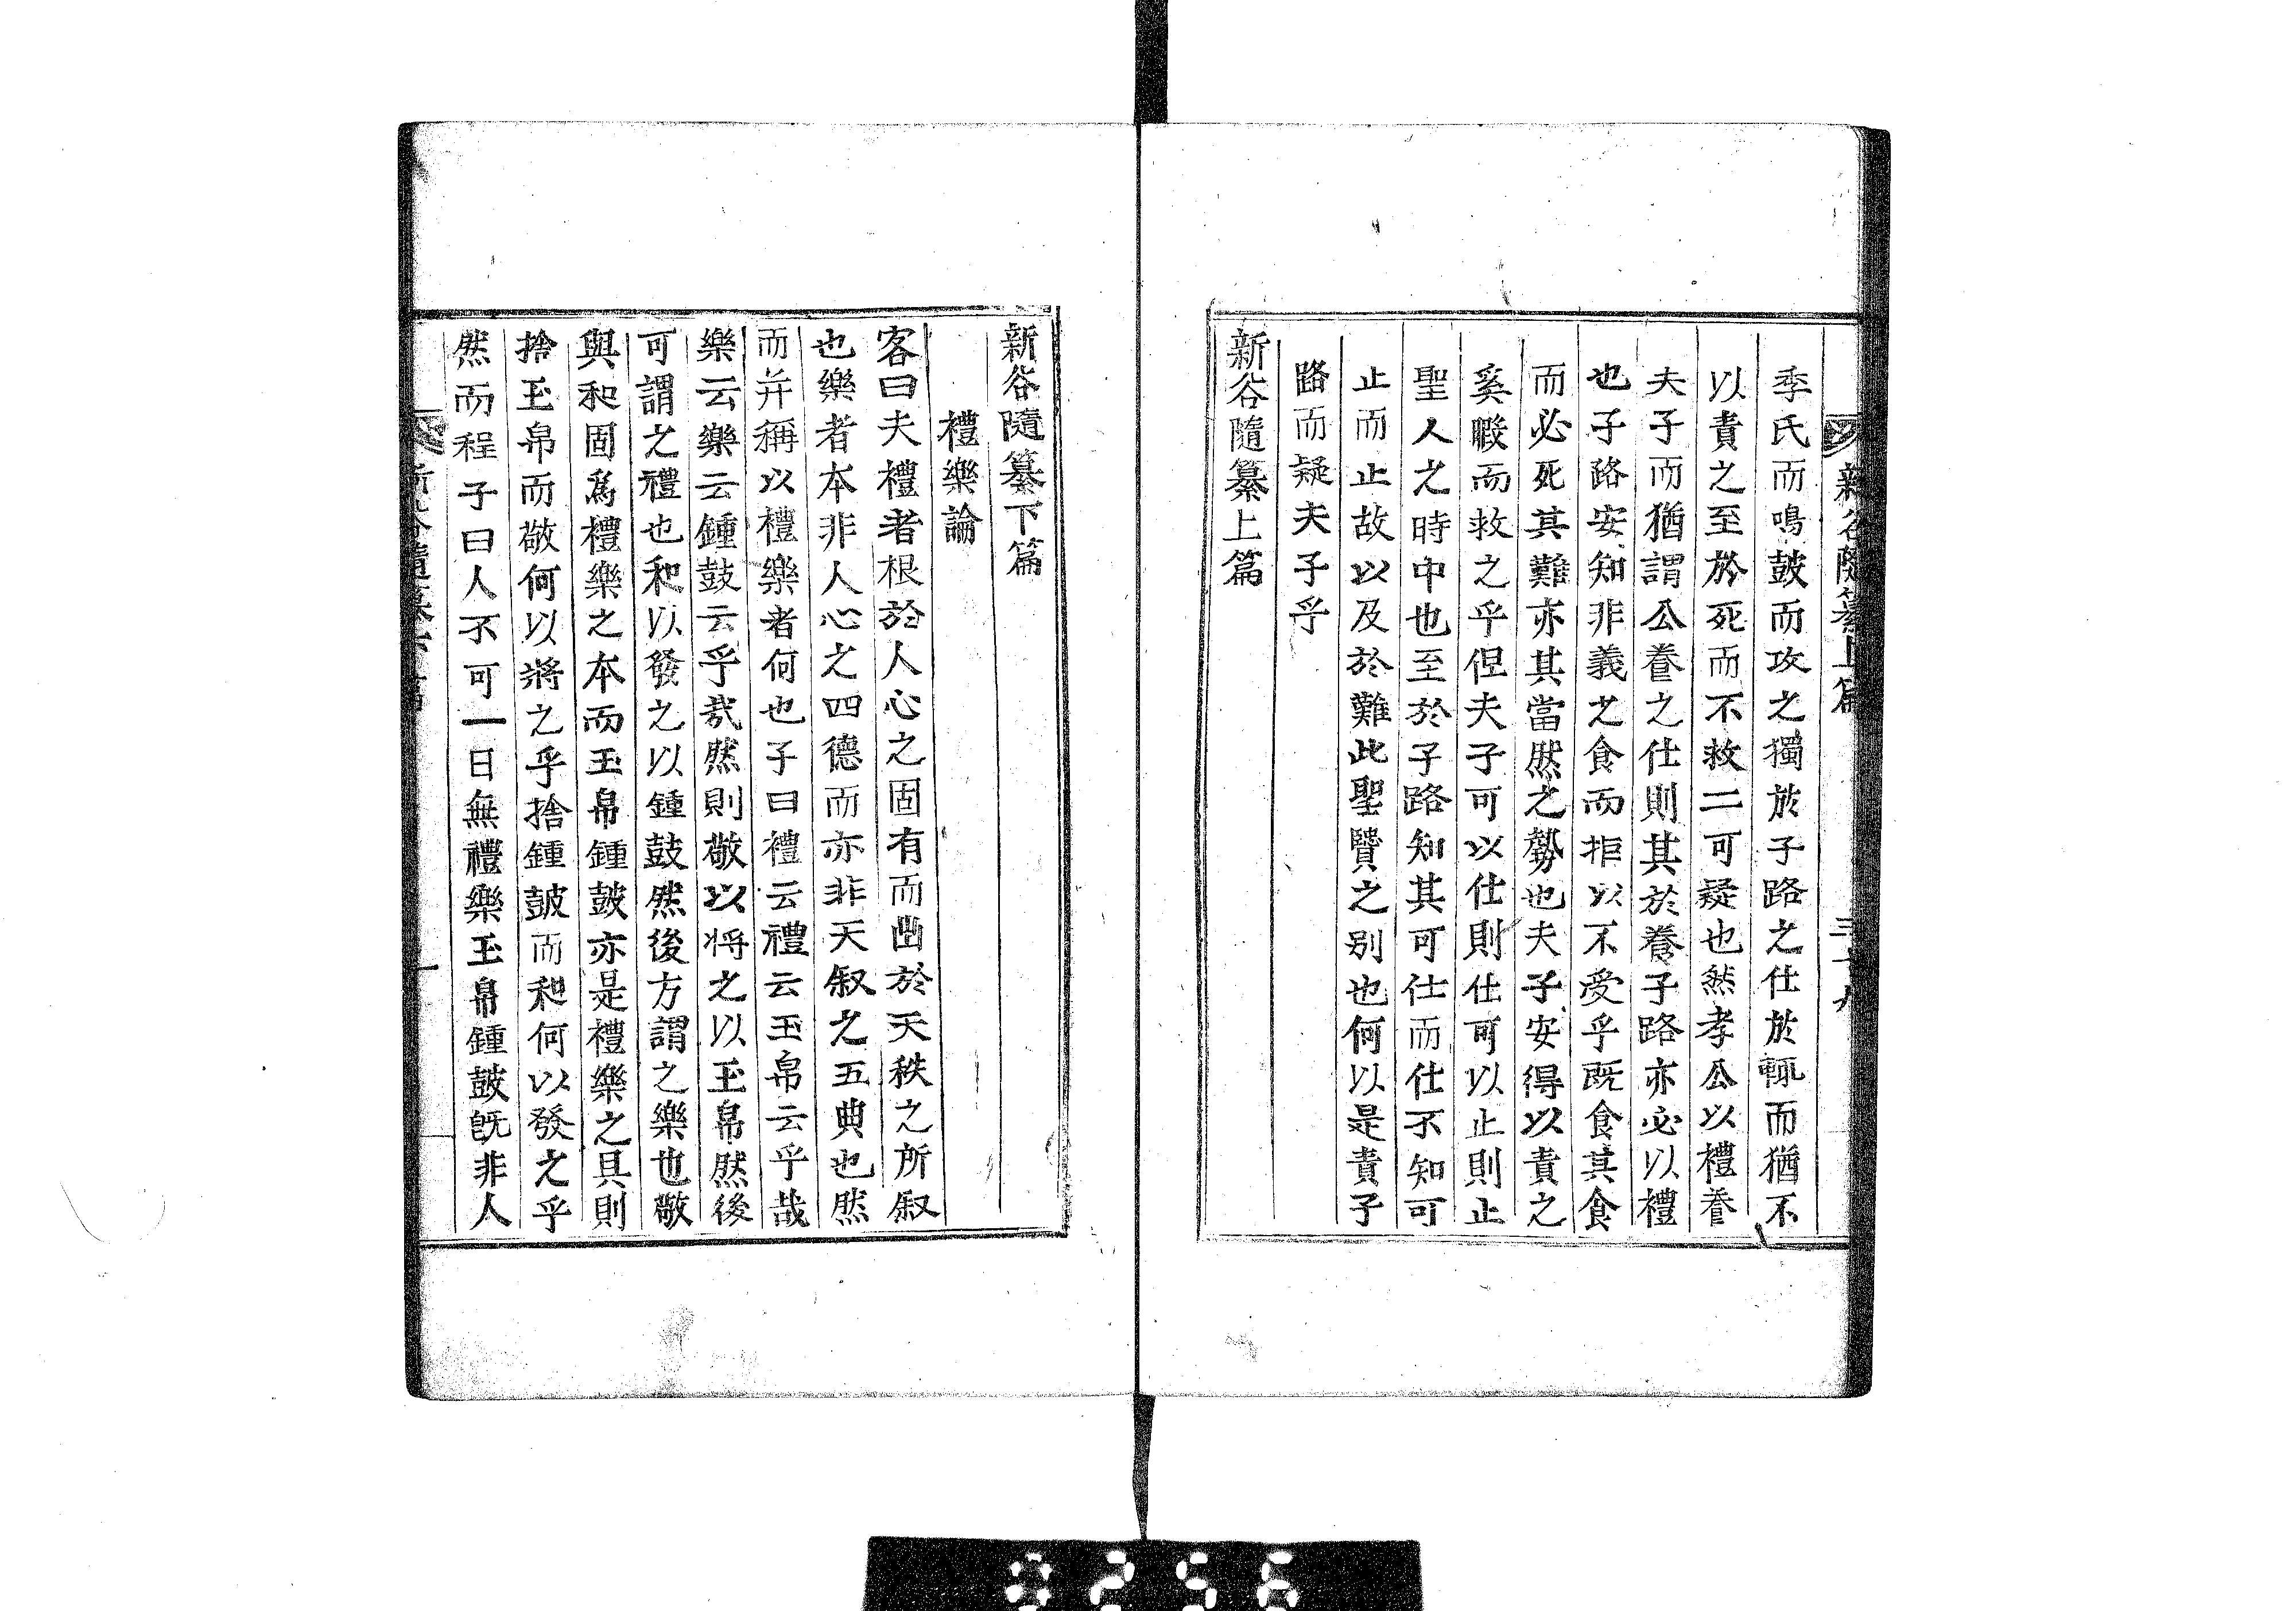 新谷隨纂上篇
季氏而鳴鼓而攻之獨於子路之仕於輒而猶不
以責之至於死而不救二可疑也然孝公以禮養
夫子而猶謂公養之仕則其於養子路亦必以禮
也子路安知非義之食而拒以不受乎既食其食
而必死其難亦其當然之勢也夫子安得以責之
奚暇而救之乎但夫子可以仕則仕可以止則止
聖人之時中也至於子路知其可仕而仕不知可
止而止故以及於難此聖賢之別也何以是責子
路而疑夫子乎
新谷隨纂上篇
新谷隨纂下篇
禮樂論
客曰夫禮者根於人心之固有而出於天秩之所叙
也樂者本非人心之四德而亦非天叙之五典也然
而并稱以禮樂者何也子曰禮云禮云玉帛云乎哉
樂云樂云鍾鼓云乎哉然則敬以將之以玉帛然後
可謂之禮也和以發之以鍾鼓然後方謂之樂也敬
與和固爲禮樂之本而玉帛鍾鼓亦是禮樂之具則
捨玉帛而敬何以將之乎捨鍾鼓而和何以發之乎
然而程子曰人不可一日無禮樂玉帛鍾鼓旣非人